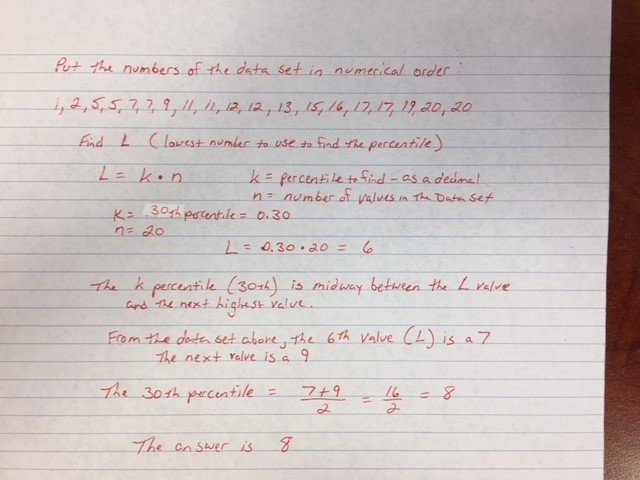 Put the numbers of the data set in numerical order
1, 2, 5, 5, 7, 7, 9, 11, 11, 12, 12, 13, 15, 16, 17, 17, 19, 20, 20
Find L (lowest number to use to find the percentile)
L = k • n k = percentile to find - as a decimal
n = number of values in the Data Set
K = .30th percentile = 0.30
n = 20
L = 0.30 • 20 = 6
The k percentile (30th) is midway between the L value
and the next highest value.
From the data set above, the 6th value (L) is a 7
The next value is a 9
The 30th percentile = 7+9/2 = 16/2 = 8
The answer is 8